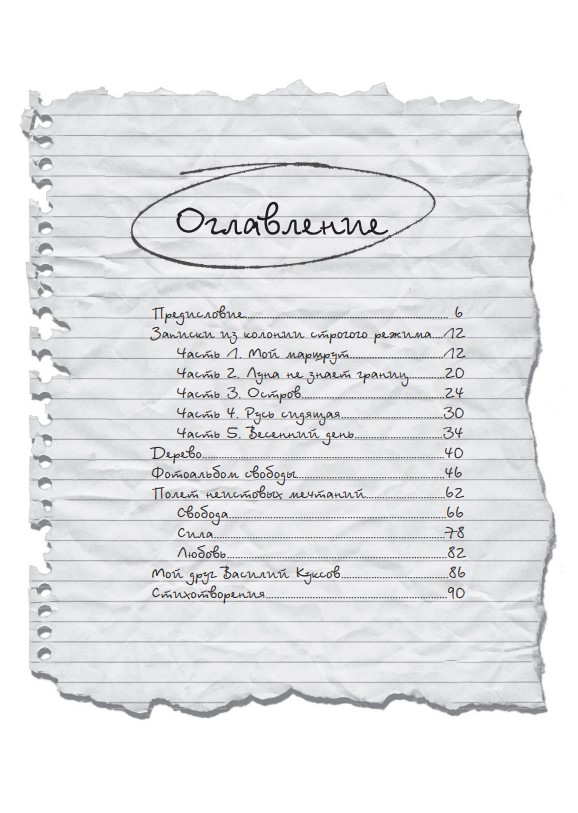 Оглавление
Предисловие 6
Записки из колонии строгого режима 12
Часть 1. Мой маршрут 12
Часть 2. Луна не знает границ 20
Часть 3. Остров 24
Часть 4. Русь сидящая 30
Часть 5. Весенний день 34
Дерево 40
Фотоальбом свободы 46
Полет неистовых мечтаний 62
Свобода 66
Сила 78
Любовь 82
Мой друг Василий Куксов 86
Стихотворения 90